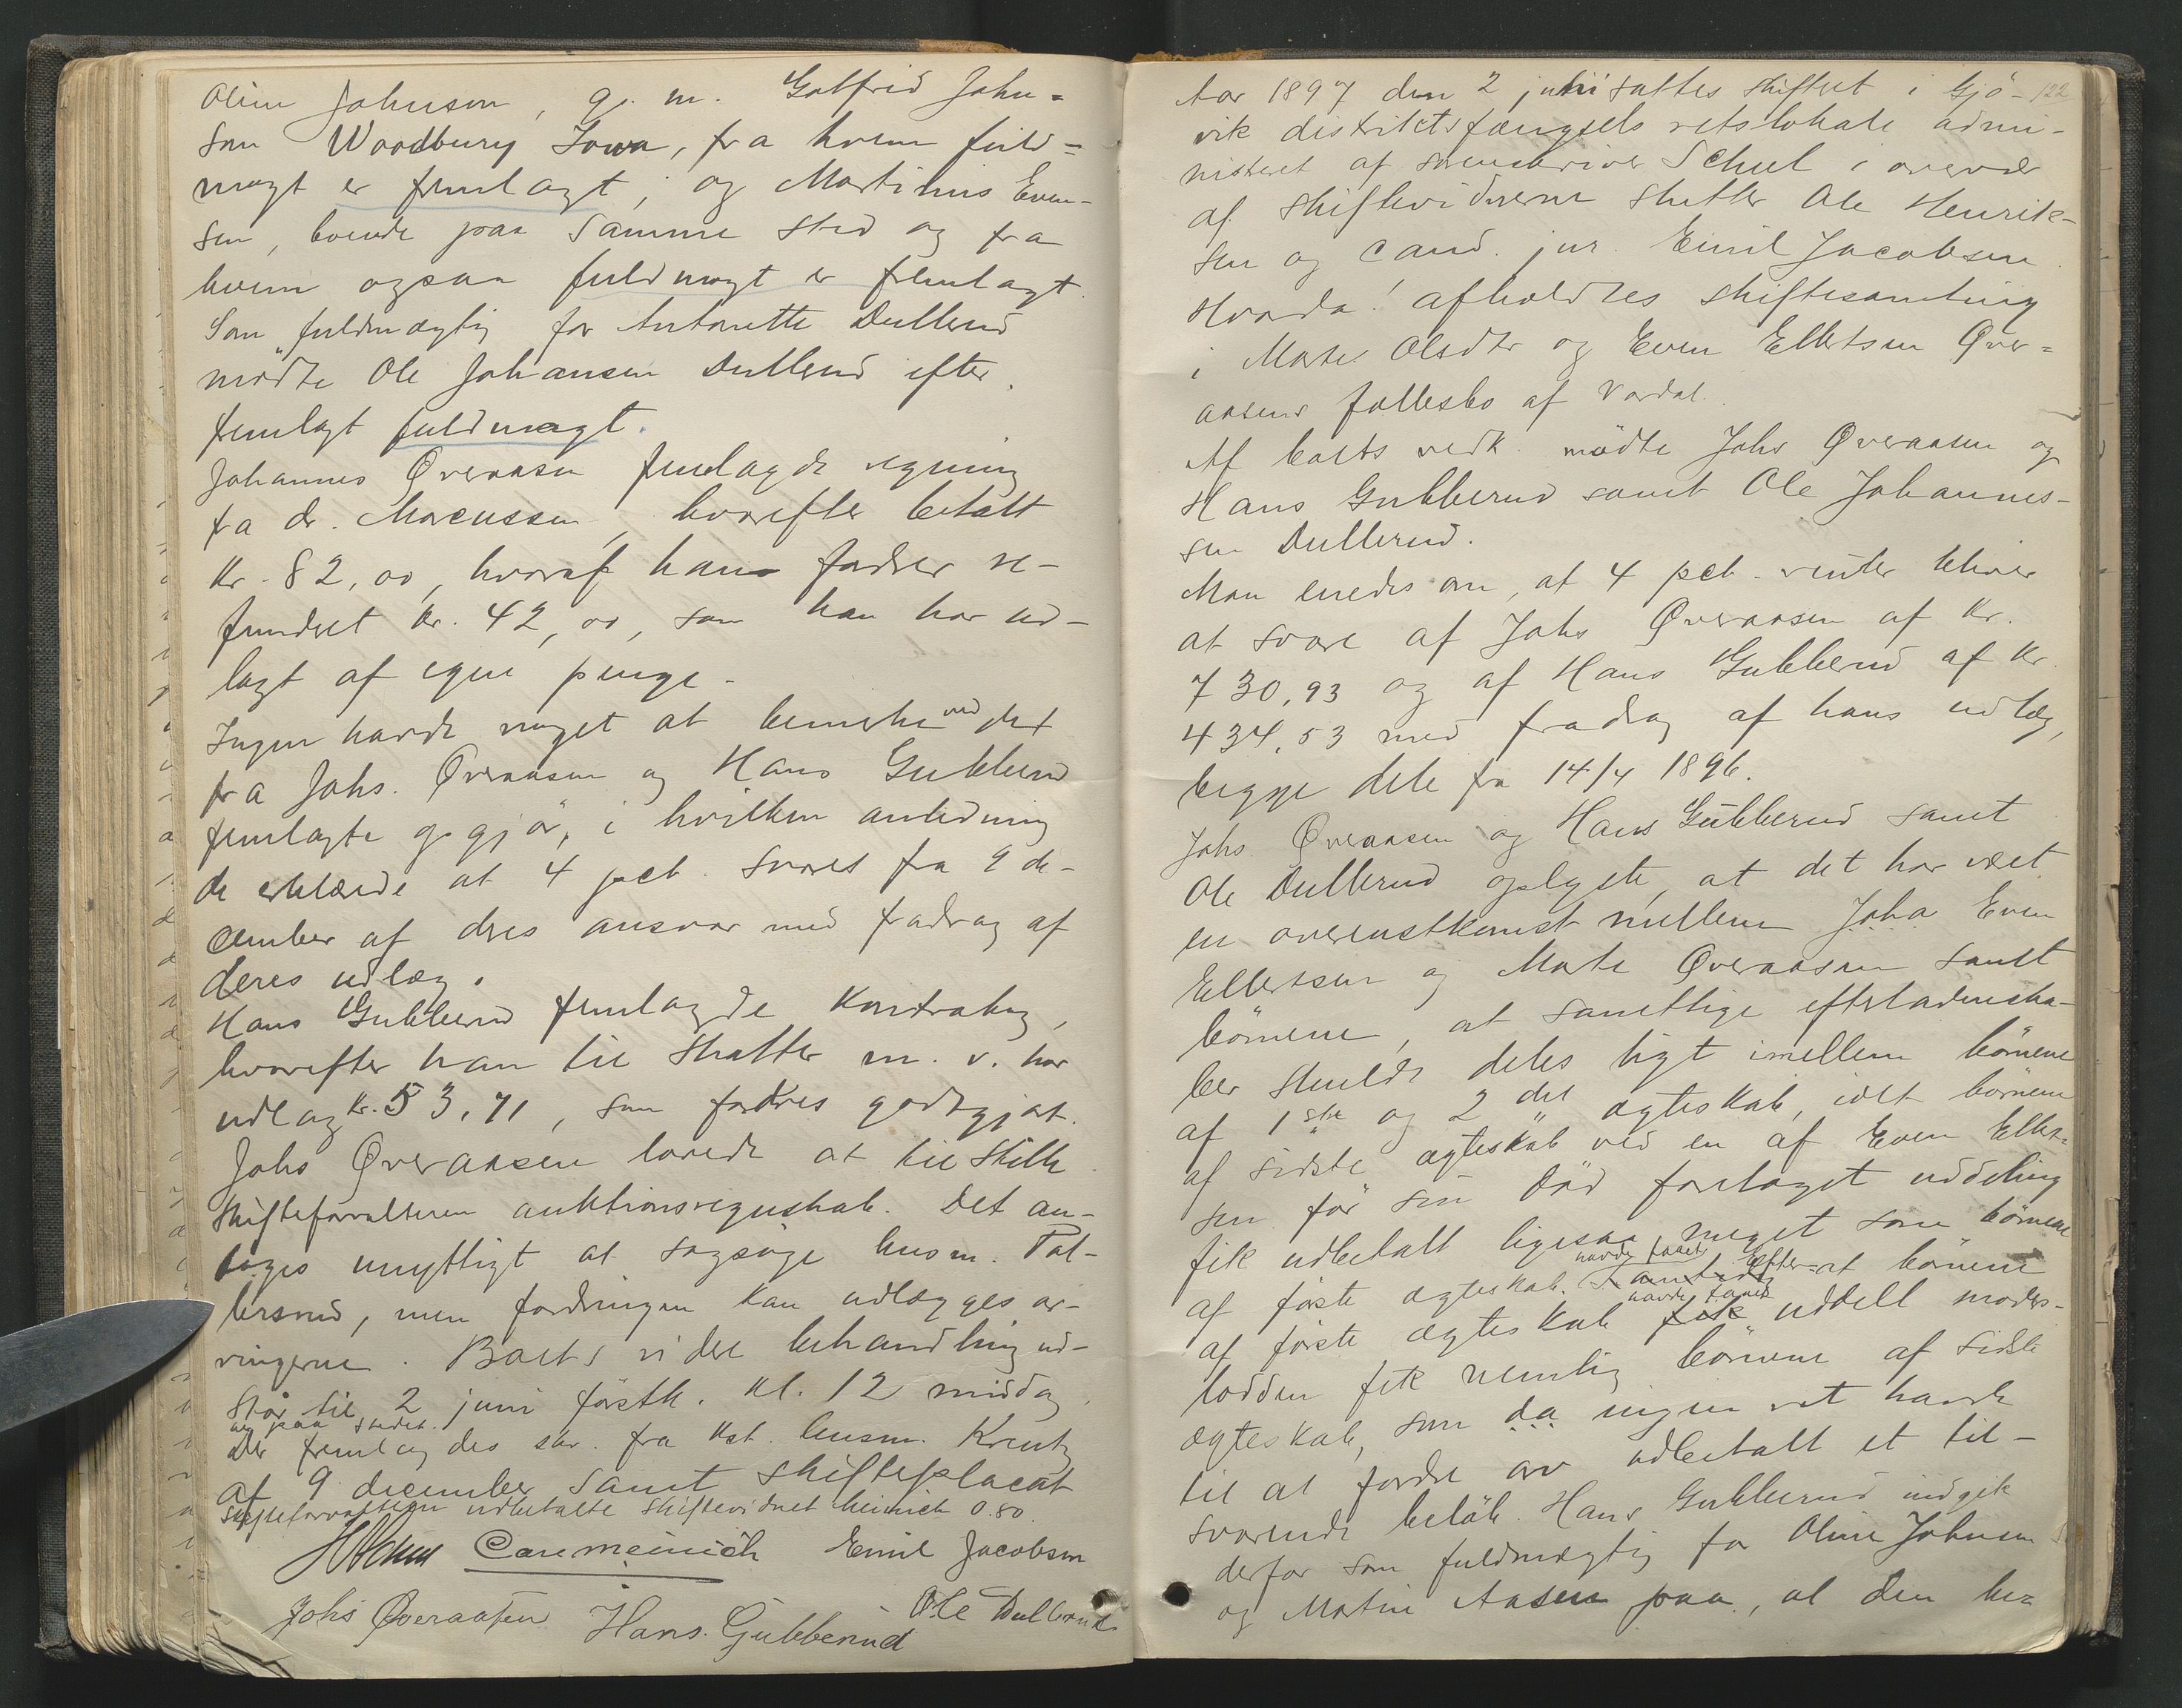 Oline Johnson, g. m. Gotfred John=
son Woodbury Iowa, fra hvem fuld=
magt er fremlagt, og Martinus Even-
sen, boende paa samme sted og fra
hvem ogsaa fuldmagt er fremlagt.
Som fuldmægtig for Antonette Dullerud
mödte Ole Johansen Dullerud efter
fremlagt fuldmagt.
Johannes Øveraasen fremlagde regning
fra dr. Marcussen, hvorefter betalt
kr. 82,00, hvoraf han fordrer re-
funderet kr. 42,00, som han har ud-
lagt af egne penge.
Ingen havde noget at bemerke ved det
fra Johs. Øveraasen og Hans Gubberud
fremlagte opgjör, i hvilken anledning
de erklærede at 4 pct. svares fra 9 de-
cember af deres ansvar med fradrag af
deres udlæg.
Hans Gubberud fremlagde kontrabog,
hvorefter han til skatter m. v. har
udlagt kr. 53,71, som fordres godtgjort.
Johs Øveraasen lovede at tilstille
skifteforvalteren auktionsregnskab. Det an-
toges unyttigt at sagsöge husm. Pal-
lersrud, men fordringen kan udlægges ar-
vingerne. Boets videre behandling ud-
står til 2 juni förstk. kl. 12 middag
her paa stedet.
Der fremlagdes skr. fra kst. lensm. Kreutz
af 9 december samt skifteplacat
Skifteforvalteren udbetalte skiftevidnet Meinich 0.80.
Carl Meinich Emil Jacobsen
Johs Øveraasen Hans Gubberud Ole Dullerud
122
Aar 1897 den 2 juni sattes skifteret i Gjö-
vik distriktsfængsels retslokale admi-
nistreret af sorenskriver Schul i overvær
af skiftevidnerne skutter Ole Henrik-
sen og cand. jur. Emil Jacobsen.
Hvorda! afholdtes skiftesamling
i Marte Olsdtr og Even Ellefsen Øver=
aasens fællesbo af Vardal.
Af boets vedk. mödte Johs Øveraasen og
Hans Gubberud samt Ole Johannes-
sen Dullerud.
Man enedes om, at 4 pct. renter bliver
at svare af Johs Øveraasen af kr.
730,93 og af Hans Gubberud af kr.
434,53 med fradrag af hans udlæg,
begge dele fra 14/4 1896.
Johs. Øveraasen og Hans Gubberud samt
Ole Dullerud oplyste, at det har været
en overenstkomst mellem Joha Even
Ellefsen og Marte Øveraasen samt
börnene, at samtlige efterladenska-
ber skulde deles ligt imellem börnene
af 1ste og 2det ægteskab, idet börnene
af sidste ægteskab ved en af Even Ellef-
sen för sin död foretaget uddeling
fik udbetalt ligesaa meget som börnene
af förste ægteskab havde faaet Efter at börnene
af förste ægteskab fik havde faaet uddelt moders-
lodden fik nemlig börnene af sidste
ægteskab, som da ingen ret havde
til at fordre arv udbetalt et til-
svarende belöb. Hans Gubberud indgik
derfor som fuldmægtig for Oline Johnson
og Martin Aasen paa, at den he=